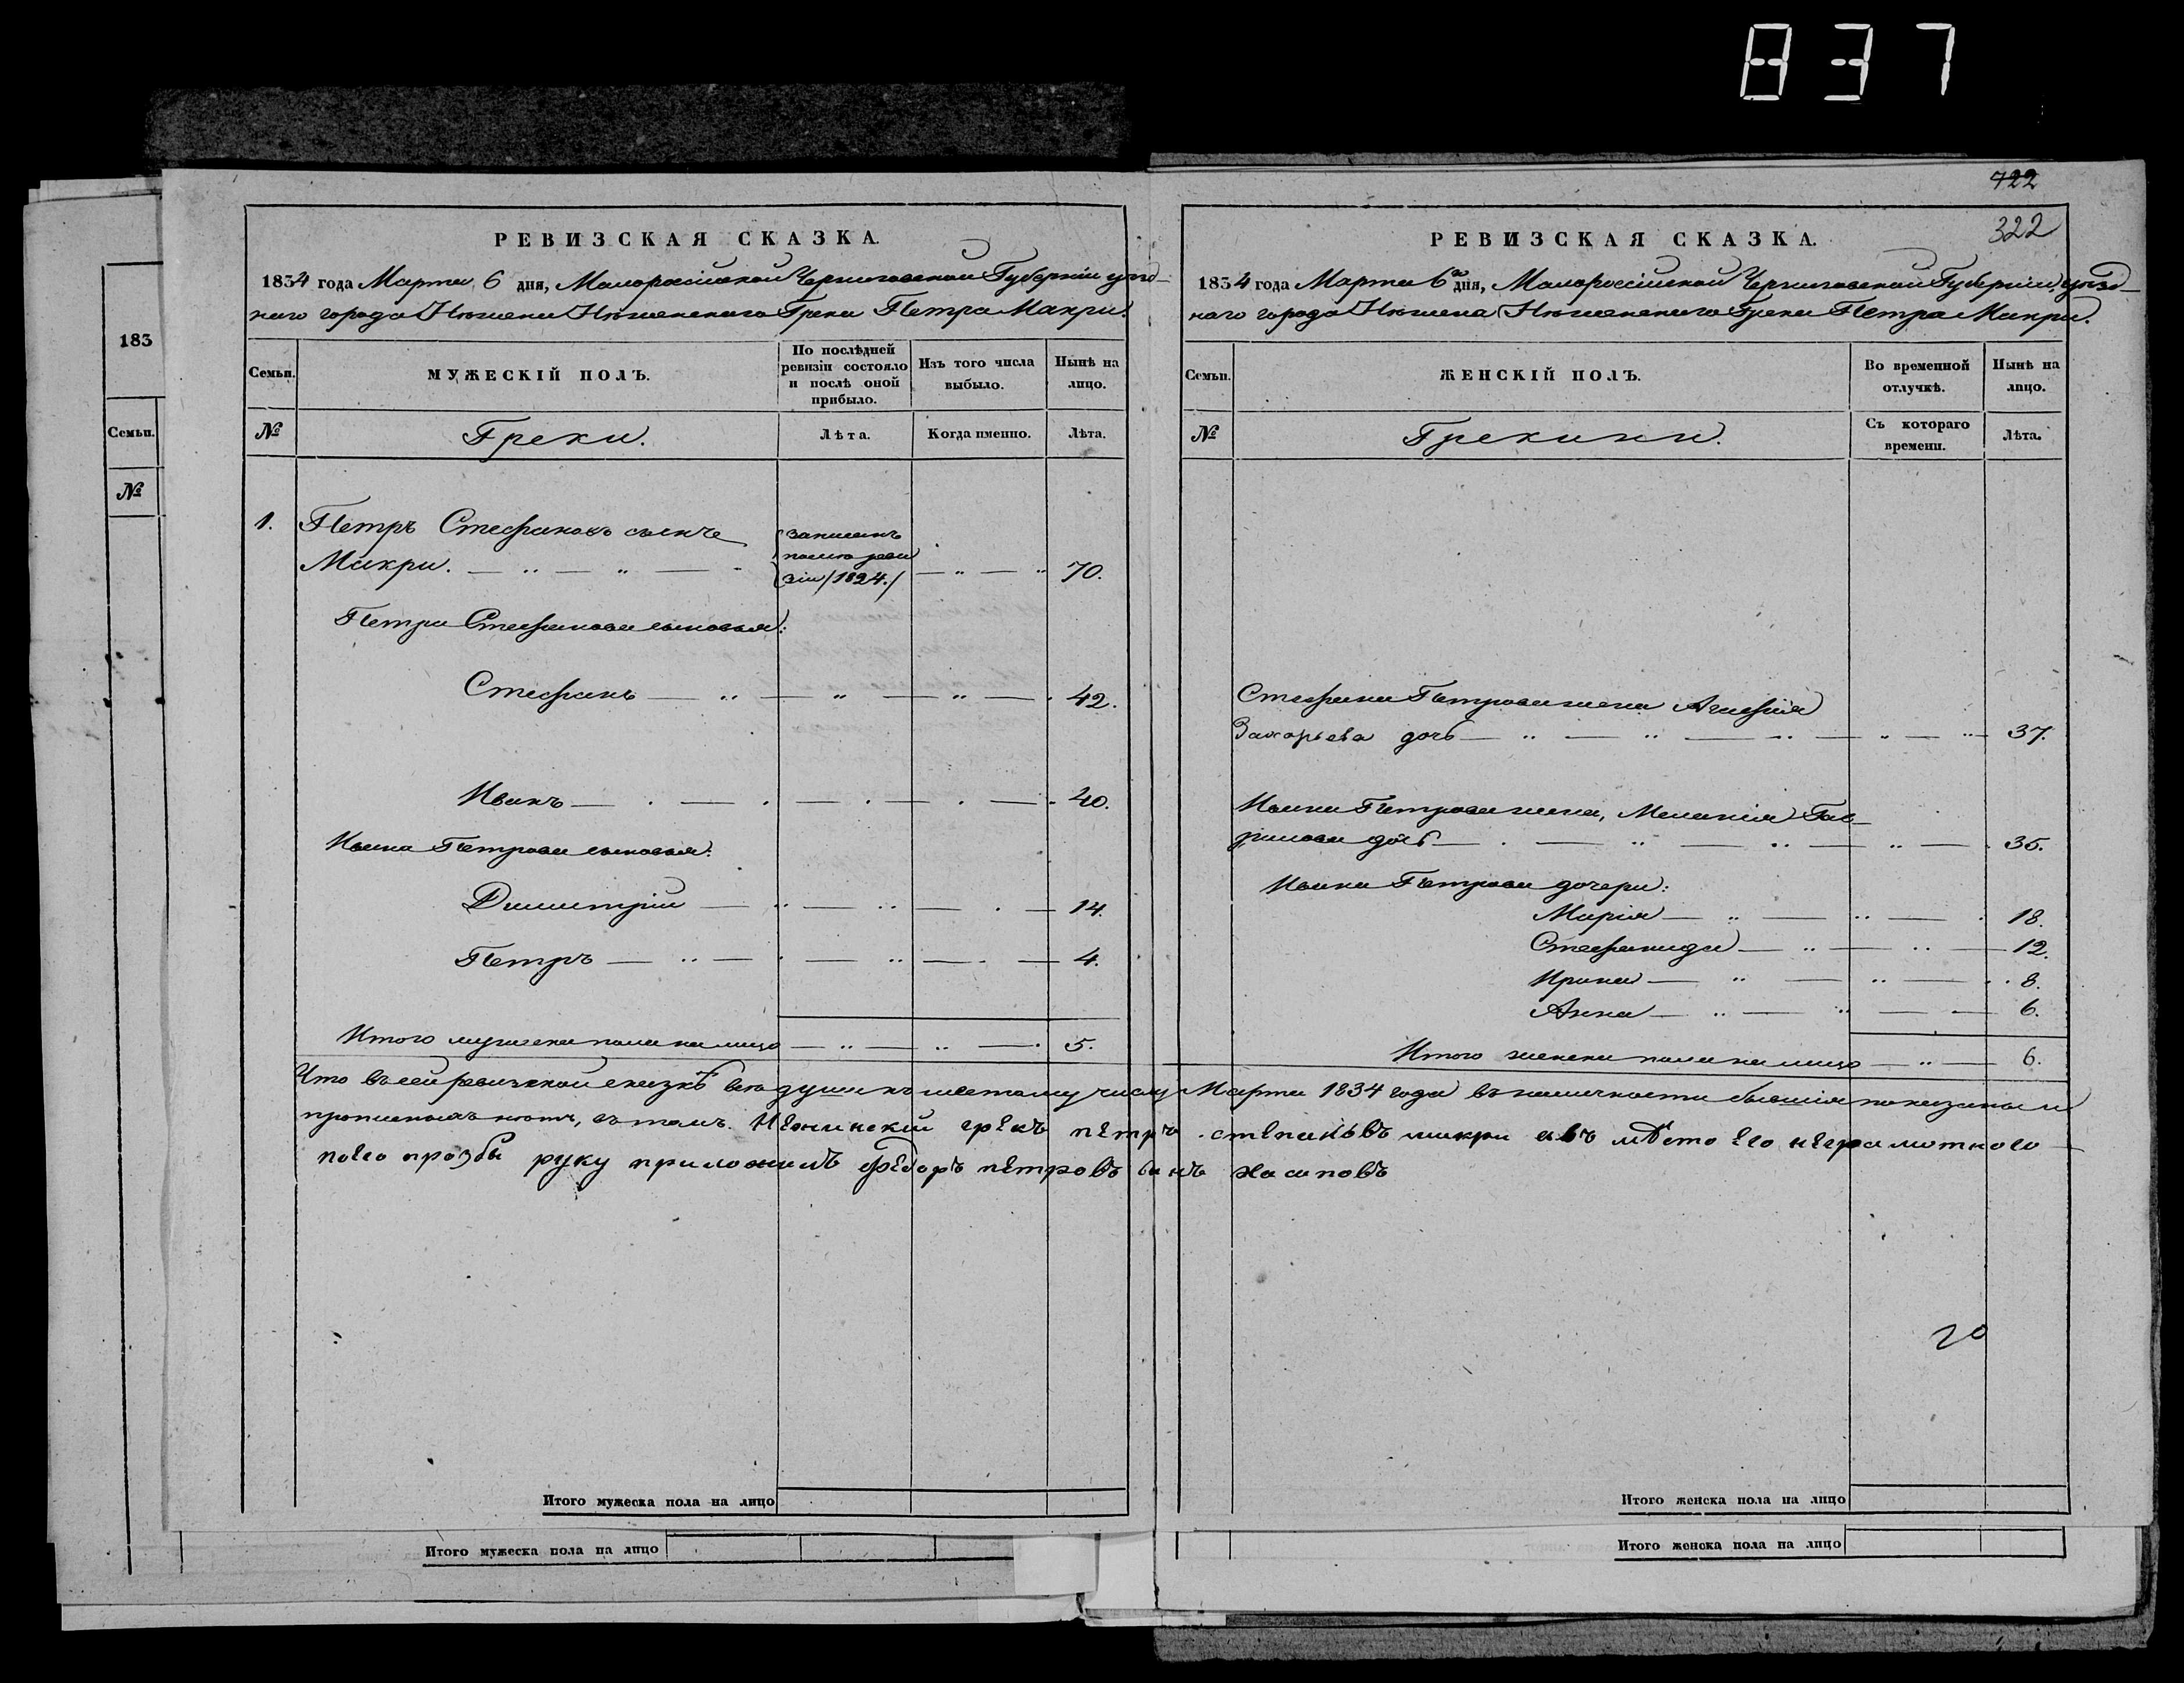 837
722
322
183
Семьи.
№
РЕВИЗСКАЯ СКАЗКА.
1834 года Марта 6 дня, Малоросійской Черниговской Губерніи уезд-
наго города Нежина Нежинскаго Грека Петра Макри.
Семьи.
МУЖЕСКІЙ ПОЛЪ.
По послѣдней ревизіи состояло и послѣ оной прибыло.
Изъ того числа выбыло.
Нынѣ на лицо.
№
Греки.
Лѣта.
Когда именно.
Лѣта.
1. Петръ Стефановъ сынъ
Макри. записанъ
после реви
зіи /1824./ 70.
Петра Стефанова сыновья:
Стефанъ 42.
Иванъ 40.
Ивана Петрова сыновья:
Димитрій 14.
Петръ 4.
Итого мужеска пола на лицо 5.
РЕВИЗСКАЯ СКАЗКА.
1834 года Марта 6 дня, Малороссійской Черниговской Губерніи, уезд-
наго города Нежина Нежинскаго Грека Петра Макри.
Семьи.
ЖЕНСКІЙ ПОЛЪ.
Во временной отлучкѣ.
Нынѣ на лицо.
№
Грекини.
Съ котораго времени.
Лѣта.
Стефана Петрова жена Агафія
Захарьева дочь 37.
Ивана Петрова жена, Меланія Гав-
рилова дочь 35.
Ивана Петрова дочери:
Марія 18.
Стефанида 12.
Ирина 8.
Анна 6.
Итого женска пола на лицо 6.
Что въ сей ревизской сказкѣ все души къ шестому числу Марта 1834 года въ наличности бывшія показаны и
прописныхъ нетъ, въ томъ. Нежинскій грекъ петръ степановъ макри авъ мѣсто его неграмотного
поего прозбы руку приложилъ федоръ петровъ
20
Итого мужеска пола на лицо
Итого женска пола на лицо
Итого мужеска пола на лицо
Итого женска пола на лицо